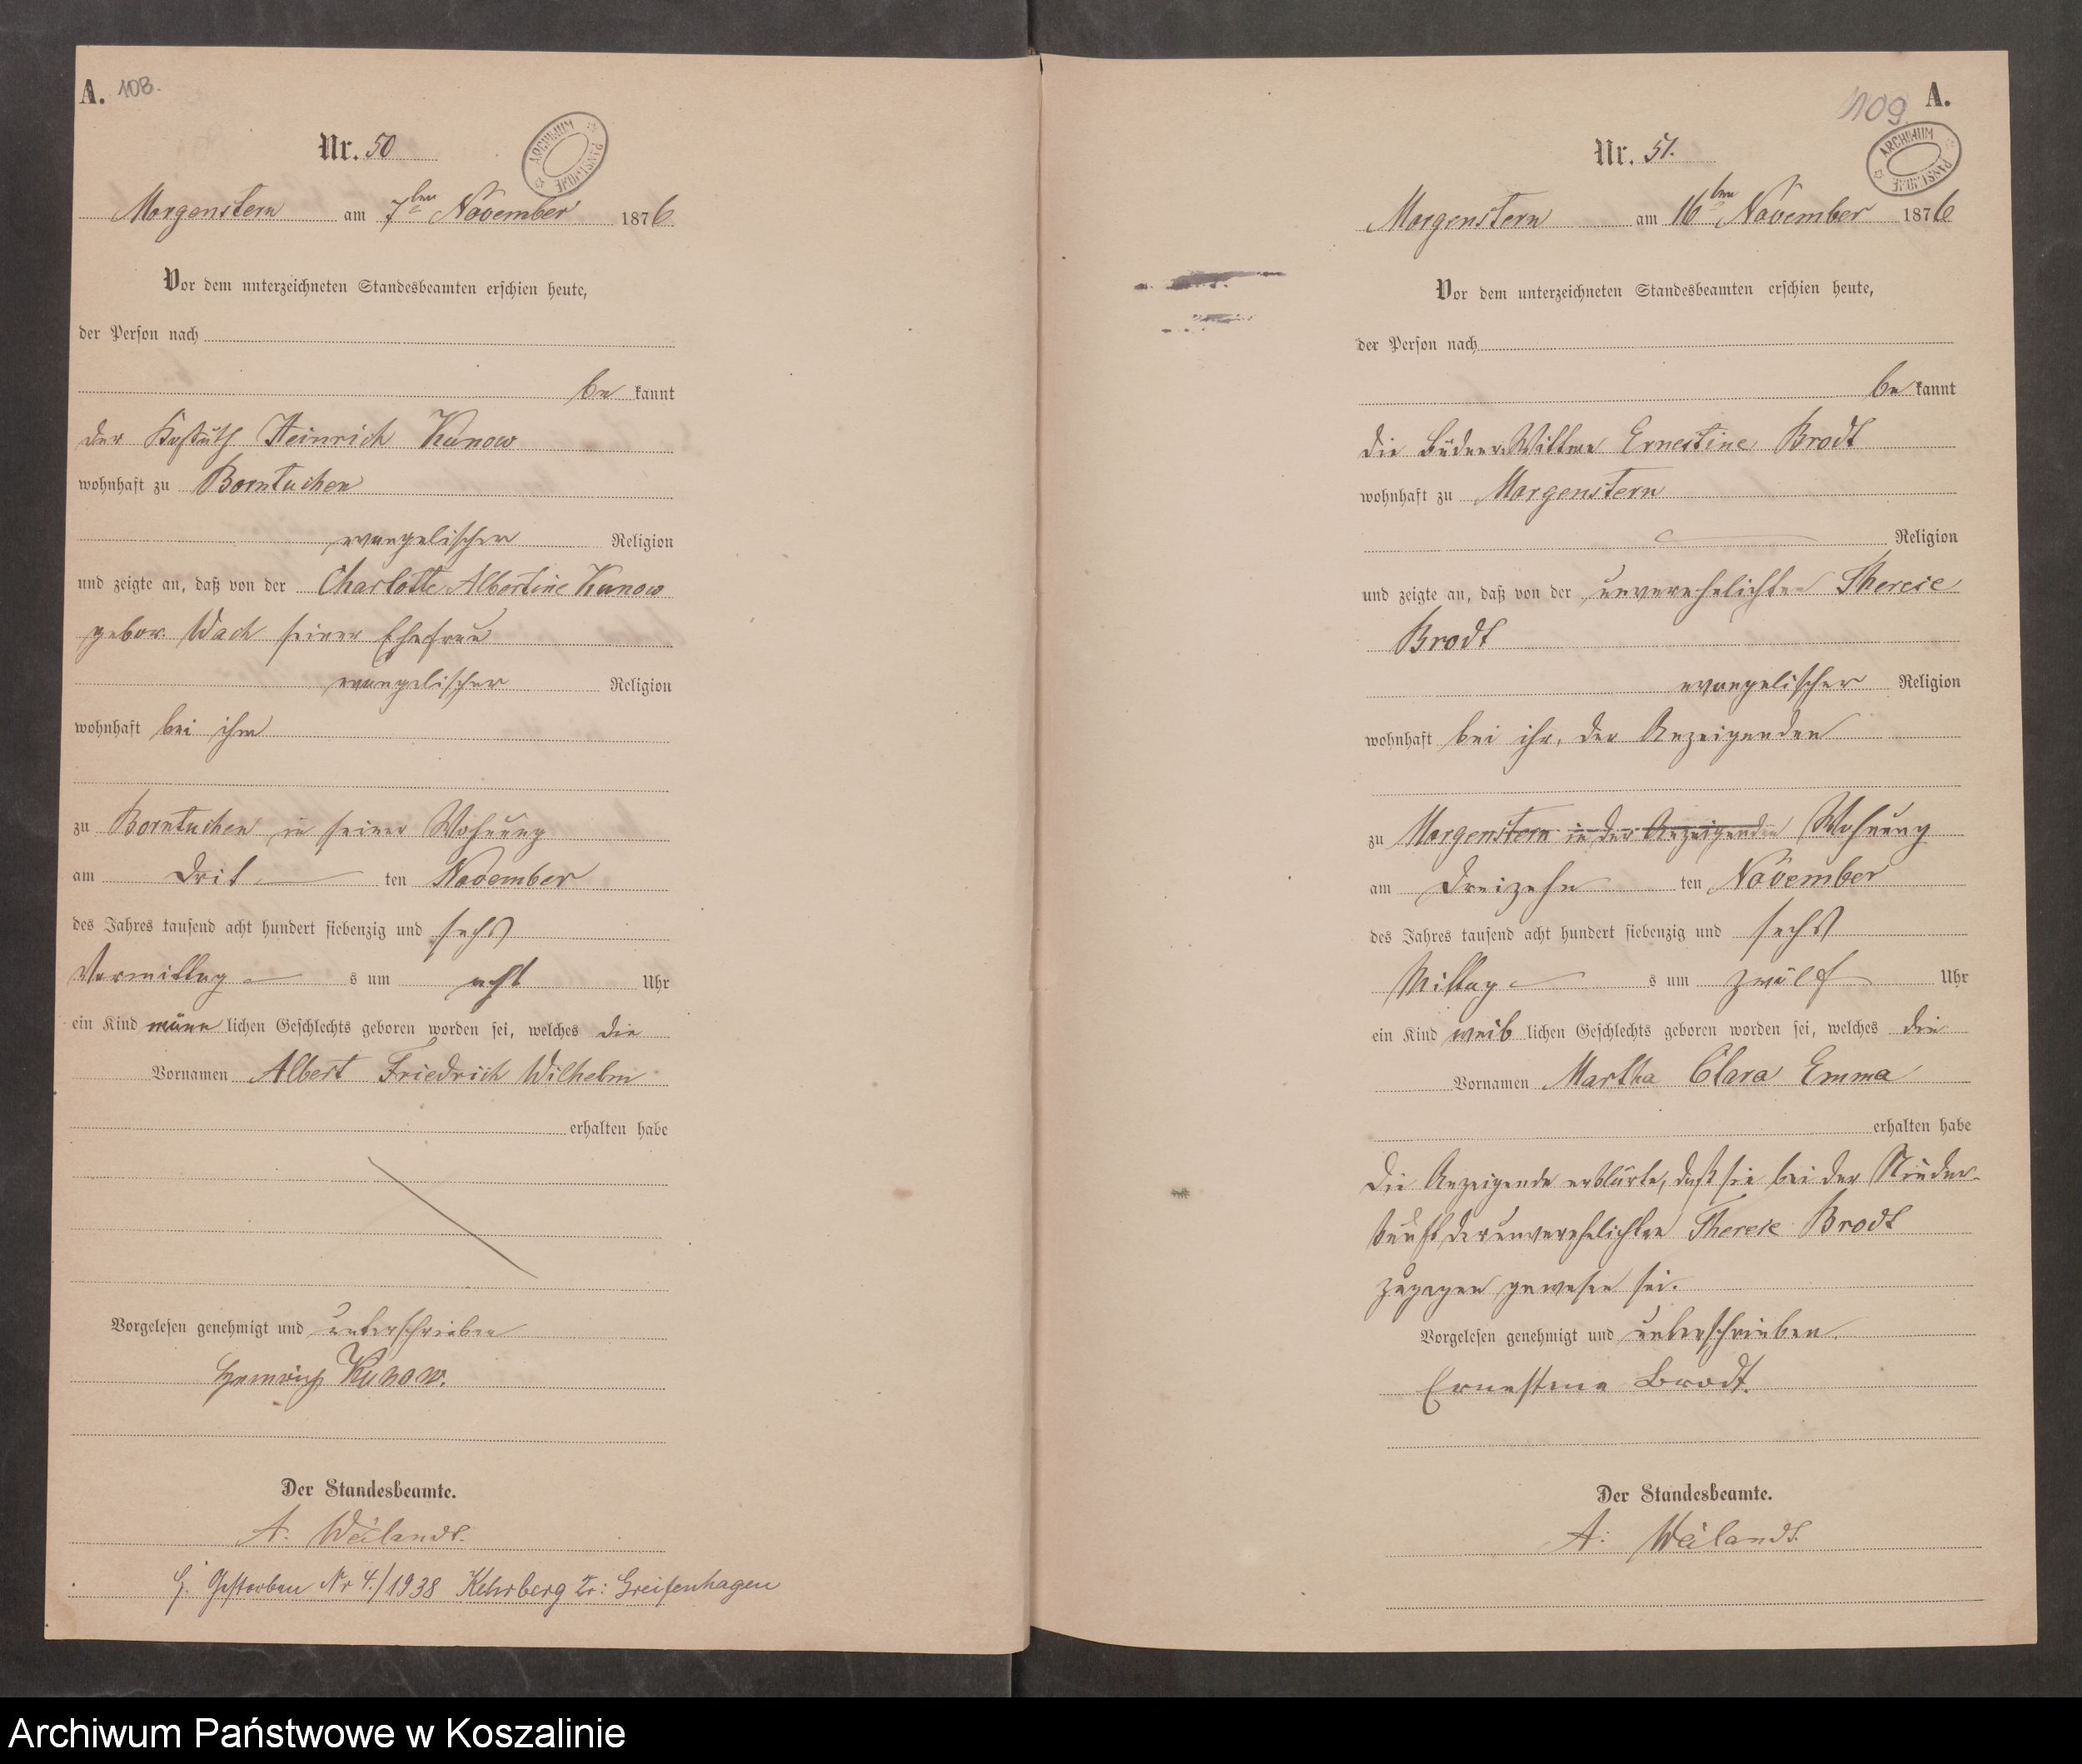 A. 108.
Nr. 50
ARCHIWUM PAŃSTWOWE
Morgenstern am 7ten November 1876
Vor dem unterzeichneten Standesbeamten erschien heute,
der Person nach
be kannt
der Heinrich Kunow
wohnhaft zu Borntuchen
evangelischer Religion
und zeigte an, daß von der Charlotte Albertine Kunow
gebor. Wach seiner Ehefrau
evangelischer Religion
wohnhaft bei ihm
zu Borntuchen in seiner Wohnung
am drit ten November
des Jahres tausend acht hundert siebenzig und sechs
Vormittag s um acht Uhr
ein Kind männ lichen Geschlechts geboren worden sei, welches die
Vornamen Albert Friedrich Wilhelm
erhalten habe
Vorgelesen genehmigt und unterschrieben
Heinrich Kunow.
Der Standesbeamte.
A. Weilandt.
Gestorben Nr 4./1938 Kehrberg Kr: Greifenhagen
109 A.
Nr. 51.
ARCHIWUM PAŃSTWOWE
Morgenstern am 16ten November 1876
Vor dem unterzeichneten Standesbeamten erschien heute,
der Person nach
be kannt
die Büdner Wittwe Ernestine Brodt
wohnhaft zu Morgenstern
Religion
und zeigte an, daß von der unverehelichten Therese
Brodt
evangelischer Religion
wohnhaft bei ihr, der Anzeigenden
zu Morgenstern in der Anzeigenden Wohnung
am dreizehn ten November
des Jahres tausend acht hundert siebenzig und sechs
Mittag s um zwölf Uhr
ein Kind weib lichen Geschlechts geboren worden sei, welches die
Vornamen Martha Clara Emma
erhalten habe
Die Anzeigende erklärte, daß sie bei der Nieder-
kunft der unverehelichten Therese Brodt
zugegen gewesen sei.
Vorgelesen genehmigt und unterschrieben.
Ernestine Brodt.
Der Standesbeamte.
A. Weilandt.
Archiwum Państwowe w Koszalinie